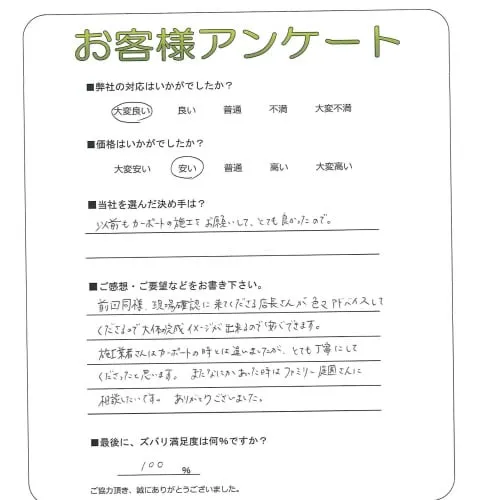 お客様アンケート
■弊社の対応はいかがでしたか？
大変良い 良い 普通 不満 大変不満
■価格はいかがでしたか？
大変安い 安い 普通 高い 大変高い
■当社を選んだ決め手は？
以前もカーポートの施工をお願いして、とても良かったので。
■ご感想・ご要望などをお書き下さい。
前回同様、現場確認に来てくださる店長さんが色々アドバイスして
くださるので大体完成イメージが出来るので安心できます。
施工業者さんはカーポートの時とは違いましたが、とても丁寧にして
くださったと思います。またなにかあった時はファミリー庭園さんに
相談したいです。ありがとうございました。
■最後に、ズバリ満足度は何％ですか？
100 %
ご協力頂き、誠にありがとうございました。